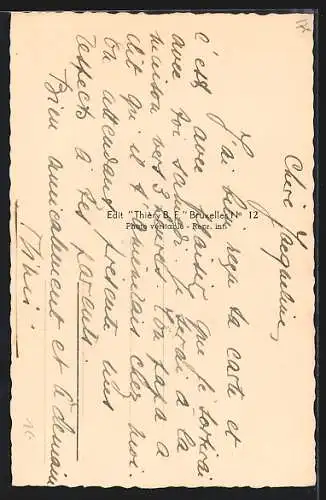 Chère Jacqueline,
J'ai bien reçu ta carte et
c'est avec plaisir que je sortirai
avec toi samedi. Je serai à la
maison vers 3 heures. Ton papa a
dit qu'il t'amènerait chez moi.
En attendant, présente mes
respects à tes parents.
Bien amicalement et à demain
Edit "Thiery B. F." Bruxelles N° 12
Photo véritable - Repr. int.